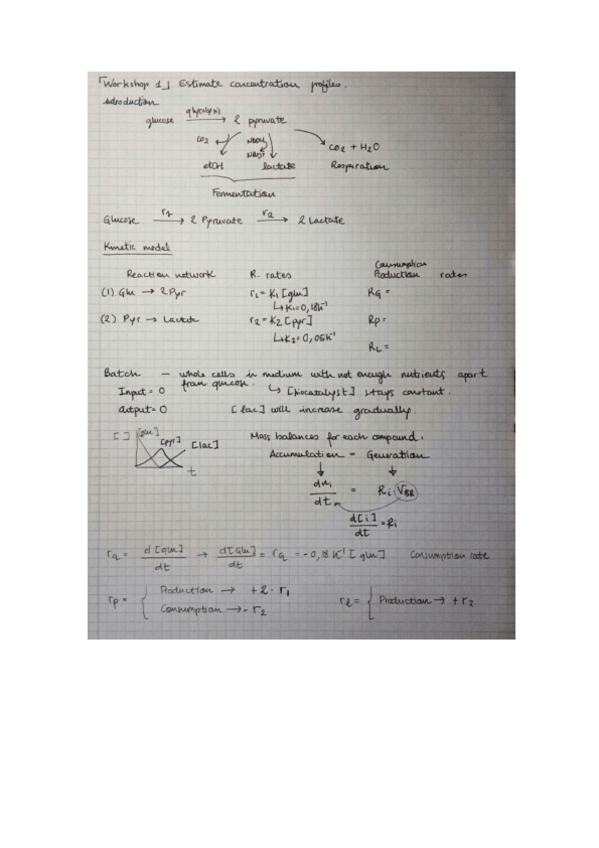 「Workshop 1」 Estimate concentration profiles.
Introduction
glucose glycolysis → 2 pyruvate
CO2 NADH NAD+ CO2 + H2O
etOH lactate Respiration
Fermentation
Glucose r1 → 2 Pyruvate r2 → 2 Lactate
Kinetic model
Consumption
Reaction network R. rates Production rates
(1) Glu → 2 Pyr r1 = K1 [glu] RG =
↳ K1 = 0,18 h-1
(2) Pyr → Lactate r2 = K2 [pyr] RP =
↳ K2 = 0,06 h-1
RL =
Batch — whole cells in medium with not enough nutrients apart
from glucose. ↳ [biocatalyst] stays constant.
Input = 0
Output = 0 [lac] will increase gradually.
[ ] [glu] [pyr] [lac] t
Mass balances for each compound:
Accumulation = Generation
dni/dt = Ri · VBR
d[i]/dt = Ri
rG = d[glu]/dt → d[Glu]/dt = rG = -0,18 h-1 [glu] Consumption rate
rp = { Production → +2 · r1
Consumption → - r2
rl = { Production → + r2